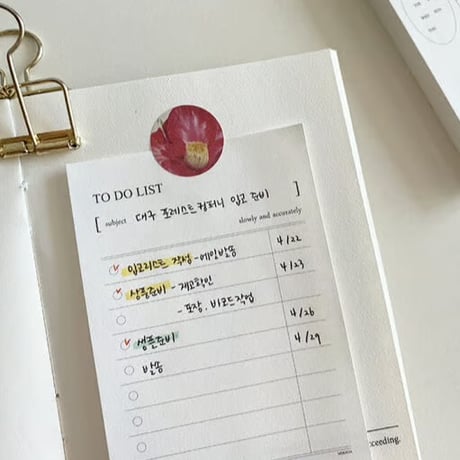 TO DO LIST
[ subject 대구 포레스트컴퍼니 입고 준비 ]
slowly and accurately
입고리스트 작성 - 메일발송 4/22
샘플준비 - 재고확인 4/23
- 포장. 바코드작업
샘플준비 4/26
발송 4/29
ceeding.